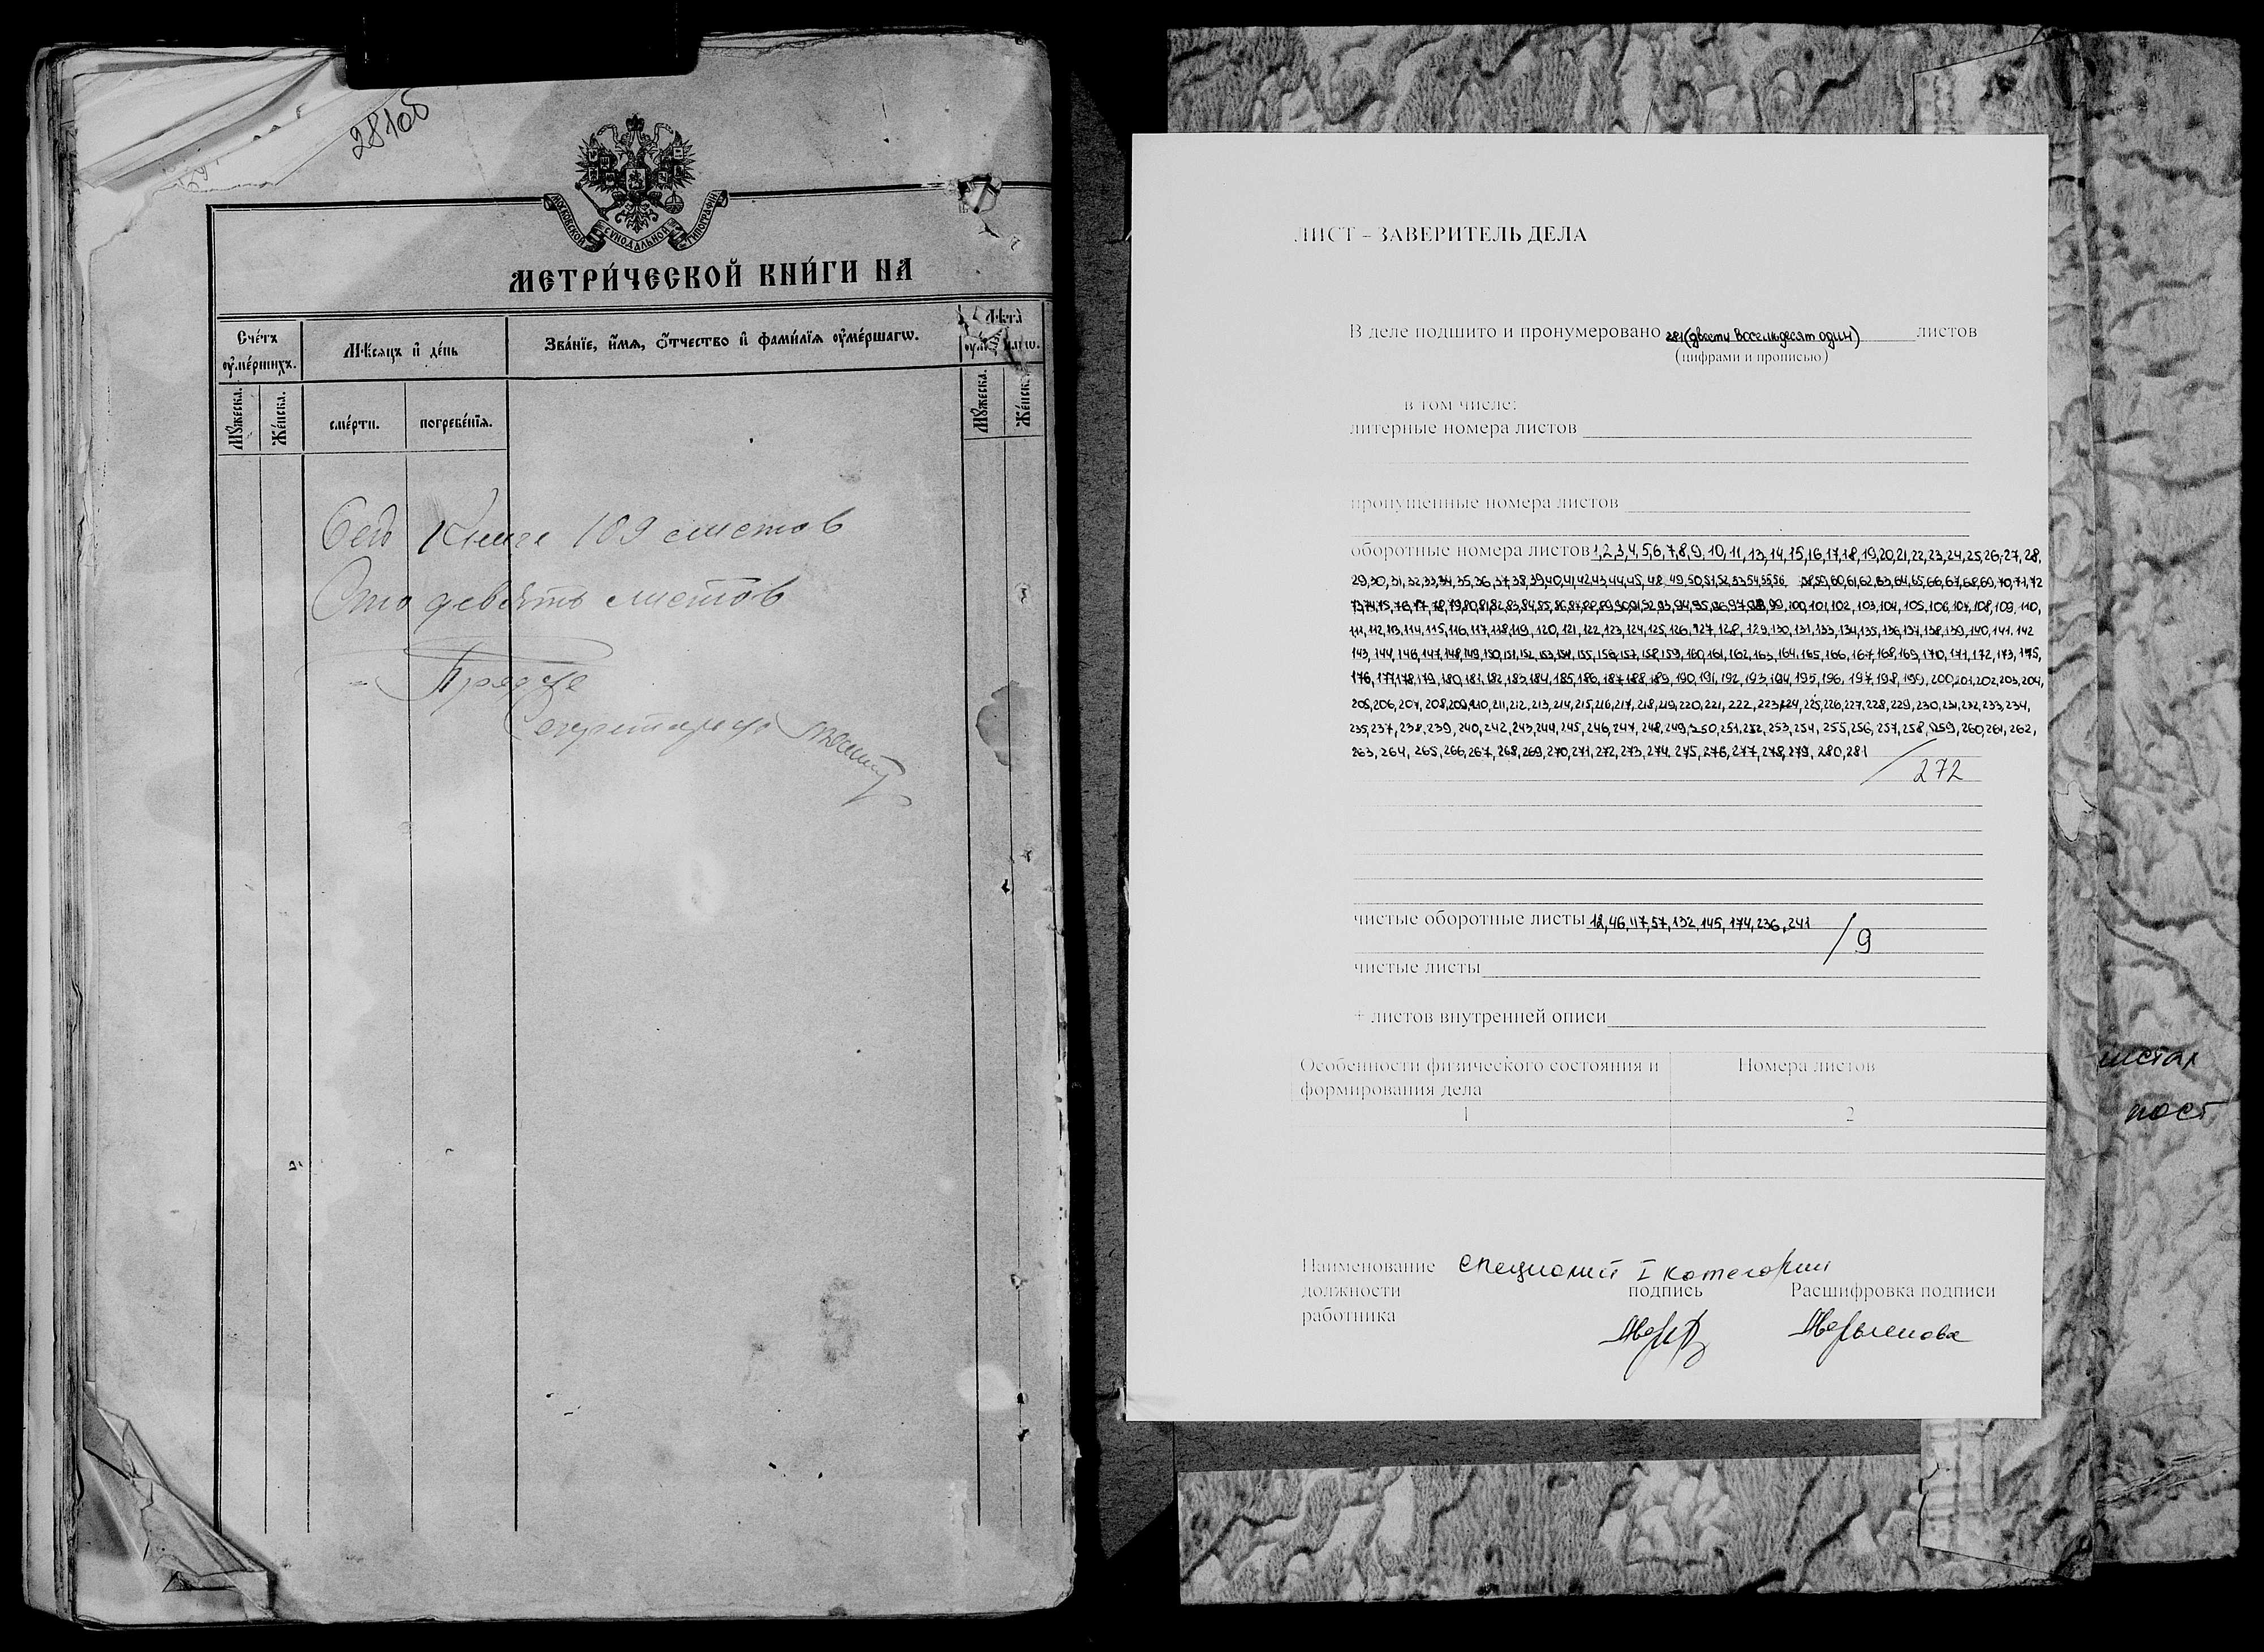 281об
МОСКОВСКОЙ СУНОДАЛЬНОЙ ТИПОГРАФІИ
МЕТРИ́ЧЕСКОЙ КНИ́ГИ НА
Сче́тъ ᲂу҆ме́ршихъ.
Мѣсяцъ и҆ де́нь
Зва́нїе, и҆́мя, ѻ҆́тчество и҆ фами́лїя ᲂу҆ме́ршагѡ.
Лѣта̀
Мꙋ́жеска.
Же́нска.
сме́рти.
погребе́нїя.
Мꙋ́жеска.
Же́нска.
Сей Книге 109 листов
Сто девять листов
Секретарь
ЛИСТ – ЗАВЕРИТЕЛЬ ДЕЛА
В деле подшито и пронумеровано 281(двести восемьдесят один) листов
(цифрами и прописью)
в том числе:
литерные номера листов
пропущенные номера листов
оборотные номера листов 1,2,3,4,5,6,7,8,9,10,11,13,14,15,16,17,18,19,20,21,22,23,24,25,26,27,28,
29,30,31,32,33,34,35,36,37,38,39,40,41,42,43,44,45,48,49,50,51,52,53,54,55,56 58,59,60,61,62,63,64,65,66,67,68,69,70,71,72
73,74,75,76,77,78,79,80,81,82,83,84,85,86,87,88,89,90,91,92,93,94,95,96,97,98,99,100,101,102,103,104,105,106,107,108,109,110,
111,112,113,114,115,116,117,118,119,120,121,122,123,124,125,126,127,128,129,130,131,133,134,135,136,137,138,139,140,141.142
143,144,146,147,148,149,150,151,152,153,154,155,156,157,158,159,160,161,162,163,164,165,166,167,168,169,170,171,172,173,175,
176,177,178,179,180,181,182,183,184,185,186,187,188,189,190,191,192,193,194,195,196,197,198,199,200,201,202,203,204,
205,206,207,208,209,210,211,212,213,214,215,216,217,218,219,220,221,222,223,224,225,226,227,228,229,230,231,232,233,234,
235,237,238,239,240,242,243,244,245,246,247,248,249,250,251,252,253,254,255,256,257,258,259,260,261,262,
263,264,265,266,267,268,269,270,271,272,273,274,275,276,277,278,279,280,281
/272
чистые оборотные листы 12,46,47,57,132,145,174,236,241
/9
чистые листы
+ листов внутренней описи
Особенности физического состояния и формирования дела
Номера листов
1
2
Наименование специалист I категории
должности подпись Расшифровка подписи
работника
листах
пост